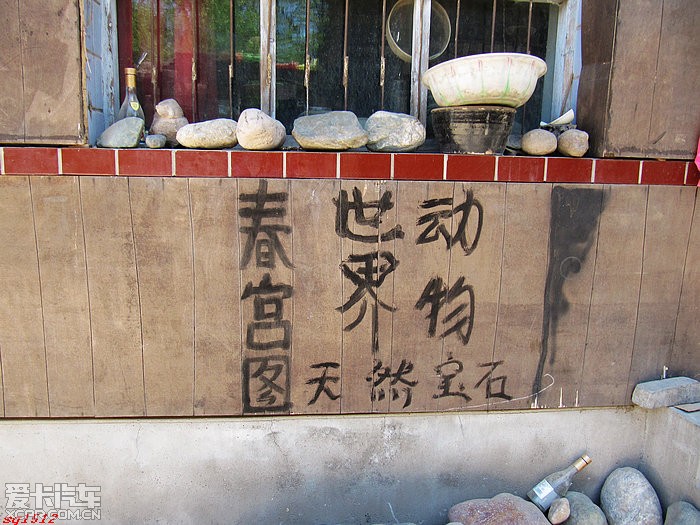 动物
世界
春宫图
天然宝石
爱卡汽车
XCAR.COM.CN
sq1512